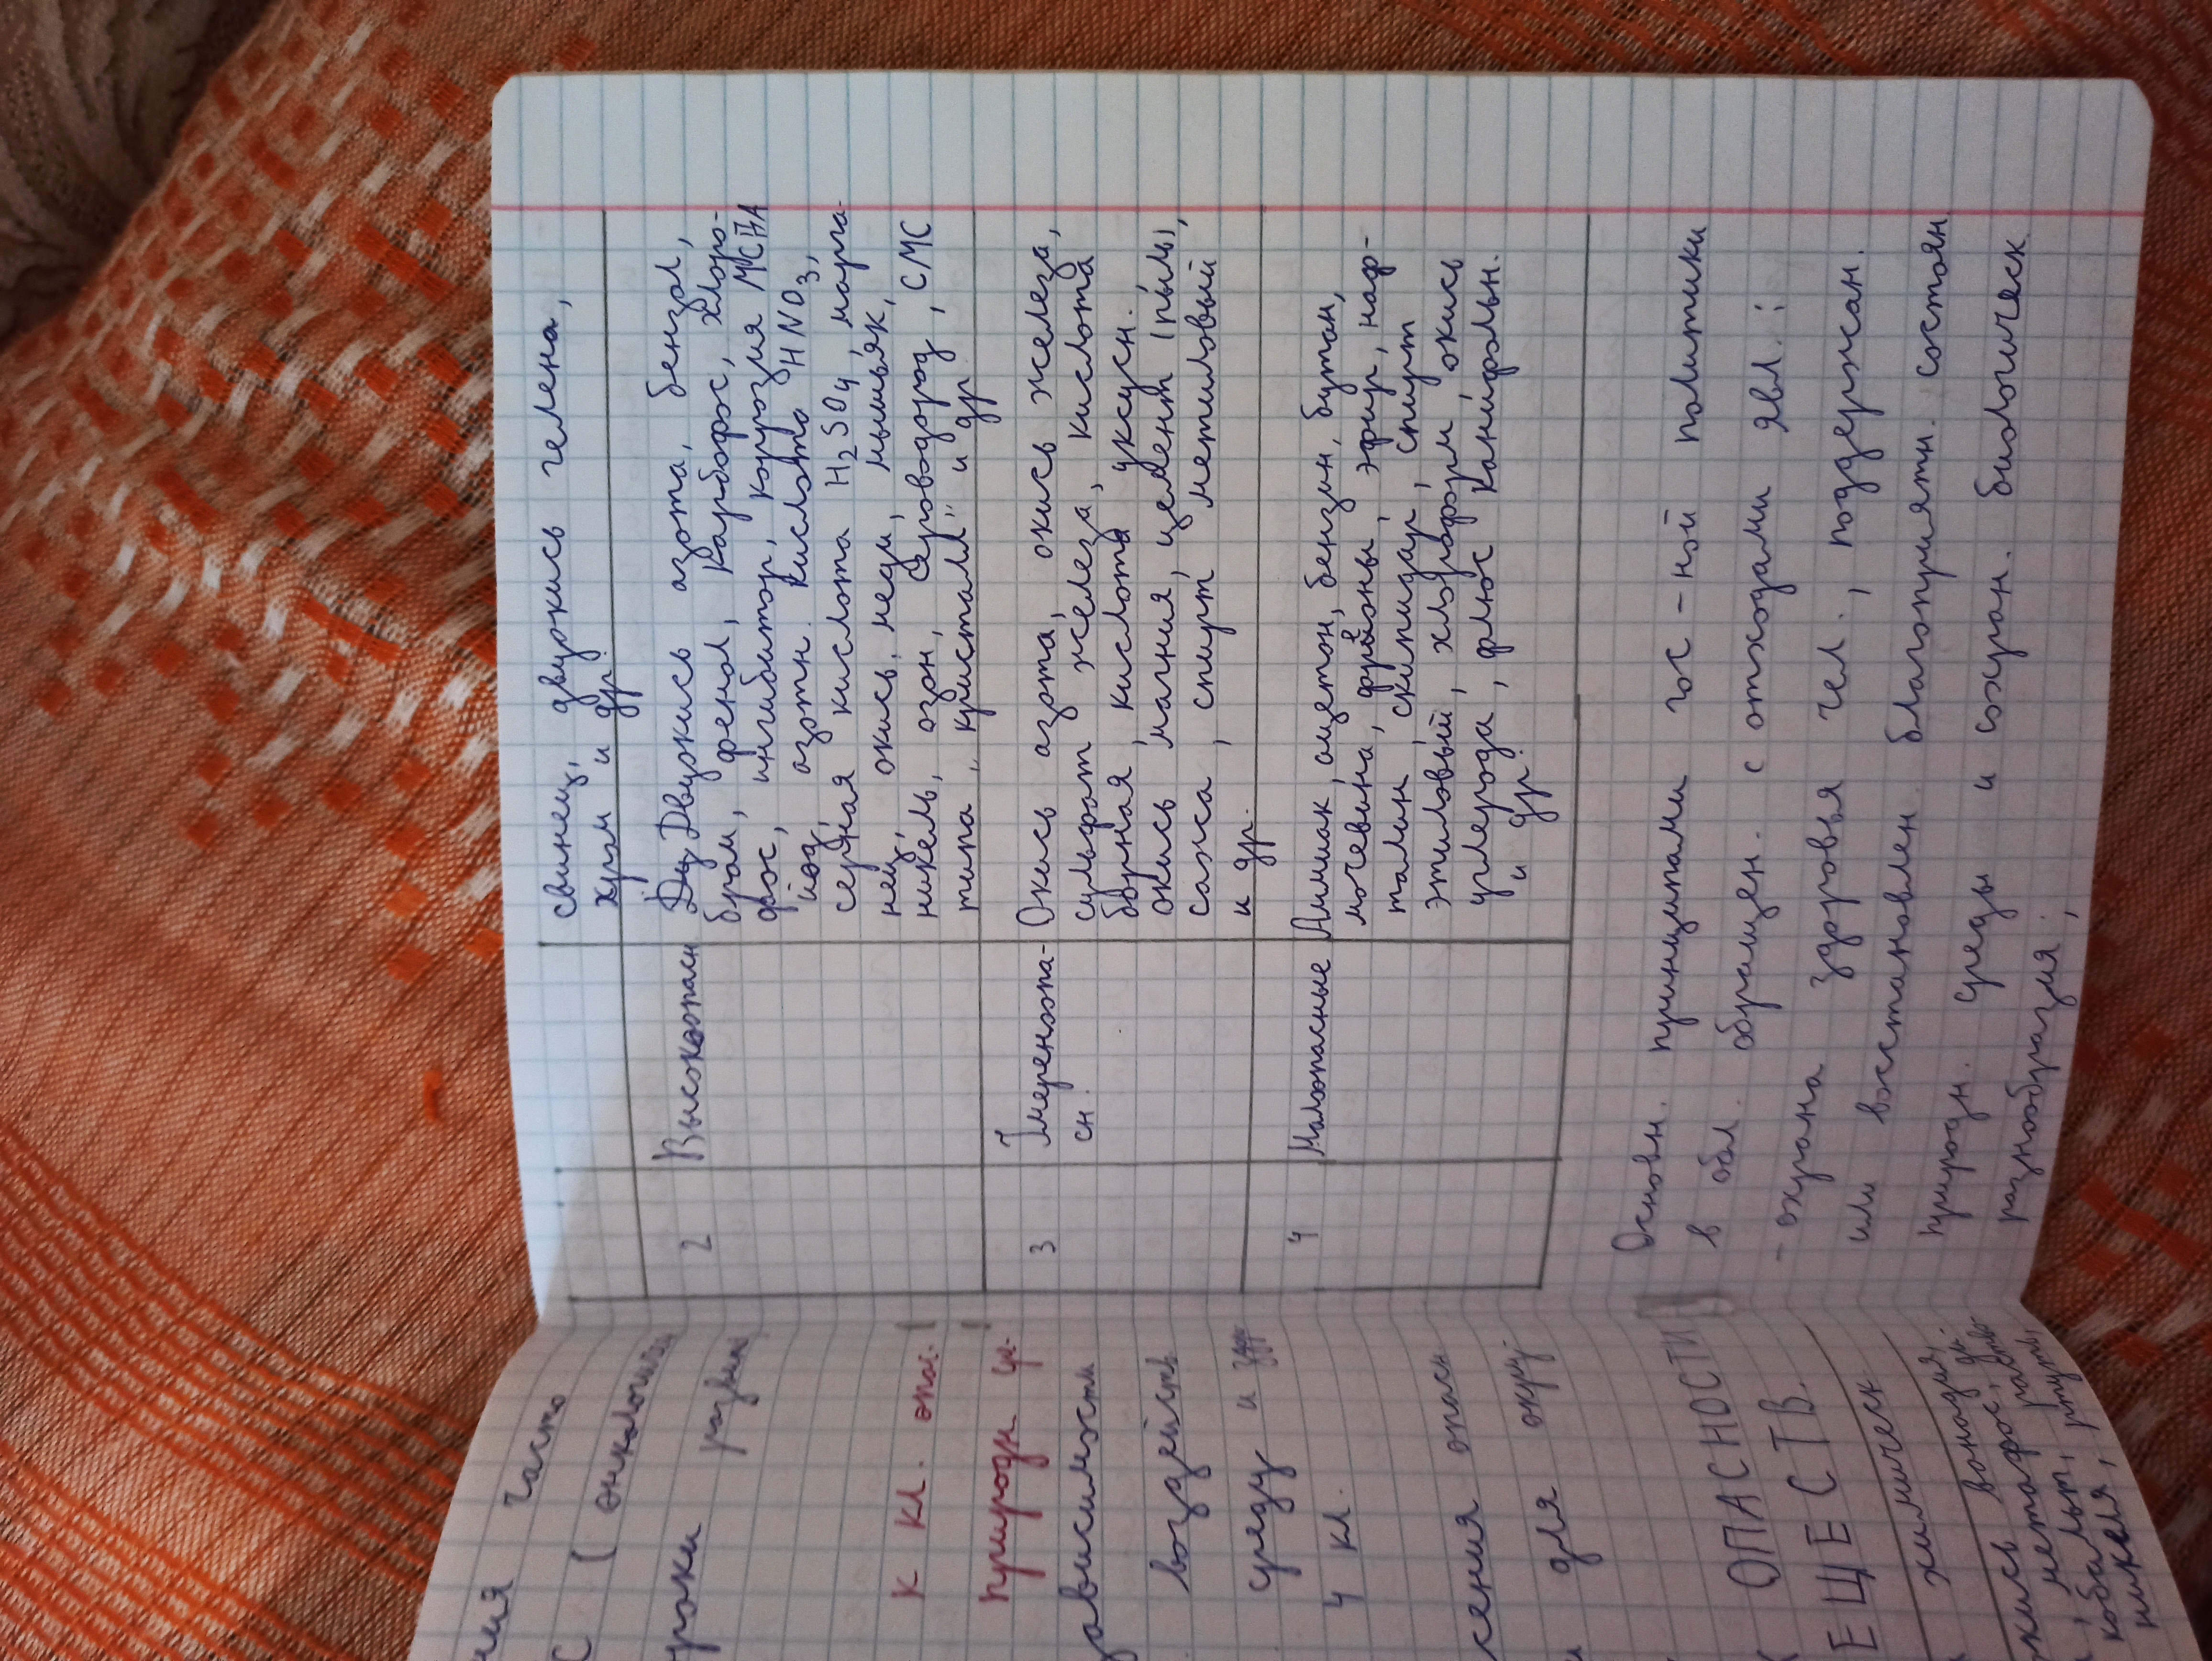 ния часто
С (онкологич
роки разви
К кл. опас.
природн ср.
ависимости
воздейств
среду и здр
4 кл.
сения опасн
для окруж
ОПАСНОСТИ
ЕЩЕСТВ.
химическ
окись ванадия, ди-
метафос, раств
кобальт, ртуть,
никеля,
свинец, двуокись гелена,
хром и др.
2 Высокоопасн Двуокись азота, бензол,
бром, фенол, Карбофос, хлоро-
фос, ингибитор, коррозия МСДА
йод, азотн. кислота HNO3,
серная кислота H2SO4, марга-
нец, окись, меди, мышьяк,
никель, озон, сероводород, СМС
типа „кристалл" и др
3 Умеренноопа- Окись азота, окись железа,
сн. сульфат железа, кислота
борная, кислота уксусн.
окись магния, цемент (пыль),
сажа, спирт метиловый
и др.
4 Малоопасные Аммиак, ацетон, бензин, бутан,
мочевина, фреоны, эфир, наф-
талин, скипидар, спирт
этиловый, хлороформ окись
углерода, флюс канифольн.
и др.
Основн. принципами гос-ной политики
в обл. обращен. с отходами явл.:
- охрана здоровья чел., поддержан.
или восстановлен. благоприятн. состоян
природн. среды и сохран. биологическ.
разнообразия;